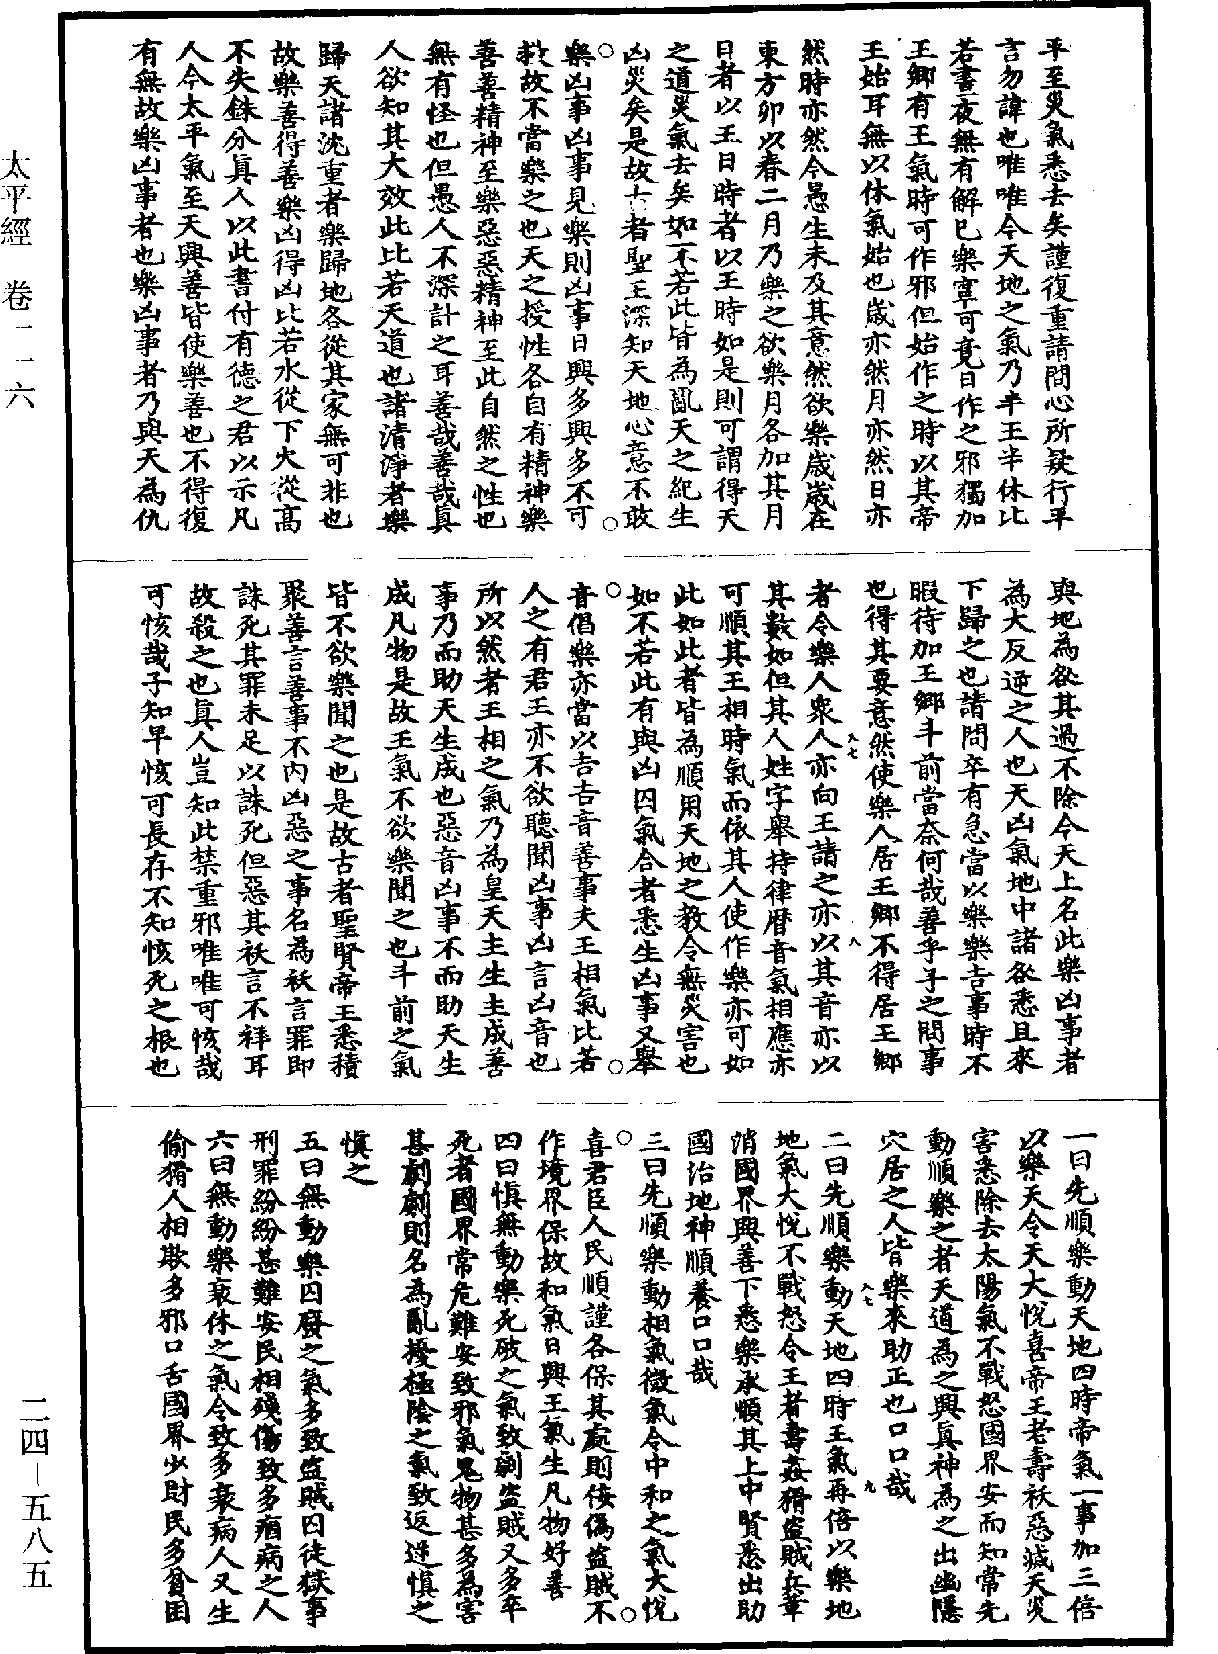 平至災氣悉去矣謹復重請問心所疑行平
言勿諱也唯唯今天地之氣乃半王半休比
若晝夜無有解已樂寧可竟日作之邪獨加
王鄉有王氣時可作邪但始作之時以其帝
王始耳無以休氣始也歲亦然月亦然日亦
然時亦然今愚生未及其意然欲樂歲歲在
東方卯以春二月乃樂之欲樂月各加其月
日者以王日時者以王時如是則可謂得天
之道災氣去矣如不若此皆為亂天之紀生
凶災矣是故古者聖王深知天地心意不敢
樂凶事凶事見樂則凶事日興多興多不可
救故不當樂之也天之授性各自有精神樂
善善精神至樂惡惡精神至此自然之性也
無有怪也但愚人不深計之耳善哉善哉真
人欲知其大效此比若天道也諸清淨者樂
歸天諸沈重者樂歸地各從其家無可非也
故樂善得善樂凶得凶比若水從下火從高
不失銖分真人以此書付有德之君以示凡
人今太平氣至天興善皆使樂善也不得復
有無故樂凶事者也樂凶事者乃與天為仇
與地為欲其過不除今天上名此樂凶事者
為大反逆之人也天凶氣地中諸欲悉且來
下歸之也請問卒有急當以樂樂吉事時不
暇待加王鄉斗前當奈何哉善乎子之問事
也得其要意然使樂人居王鄉不得居王鄉
者令樂人眾人亦向王諸之亦以其音亦以
其數如但其人姓字舉持律曆音氣相應亦
可順其王相時氣而依其人使作樂亦可如
此如此者皆為順用天地之教令無災害也
如不若此有與凶囚氣合者悉生凶事又舉
音倡樂亦當以吉吉音善事夫王相氣比若
人之有君王亦不欲聽聞凶事凶言凶音也
所以然者王相之氣乃為皇天主生主成善
事乃而助天生成也惡音凶事不而助天生
成凡物是故王氣不欲樂聞之也斗前之氣
皆不欲樂聞之也是故古者聖賢帝王悉積
聚善言善事不內凶惡之事名為袄言罪即
誅死其罪未足以誅死但惡其袄言不祥耳
故殺之也真人豈知此禁重邪唯唯可恢哉
可恢哉子知早恢可長存不知恢死之根也
一曰先順樂動天地四時帝氣一事加三倍
以樂天令天大悅喜帝王老壽袄惡滅天災
害悉除去太陽氣不戰怒國界安而知常先
動順樂之者天道為之興真神為之出幽隱
穴居之人皆樂來助正也口口哉
二曰先順樂動天地四時王氣再倍以樂地
地氣大悅不戰怒令王者壽姦猾盜賊兵革
消國界興善下悉樂承順其上中賢悉出助
國治地神順養口口哉
三曰先順樂動相氣微氣令中和之氣大悅
喜君臣人民順謹各保其處則佞偽盜賊不
作境界保故和氣日興王氣生凡物好善
四曰慎無動樂死破之氣致劇盜賊又多卒
死者國界常危難安致邪氣鬼物甚多為害
甚劇劇則名為亂擾極陰之氣致返逆慎之
慎之
五曰無動樂囚廢之氣多致盜賊囚徒獄事
刑罪紛紛甚難安民相殘傷致多痼病之人
六曰無動樂衰休之氣令致多衰病人又生
偷猾人相欺多邪口舌國界少財民多貧困
太平經 卷一一六
二四—五八五